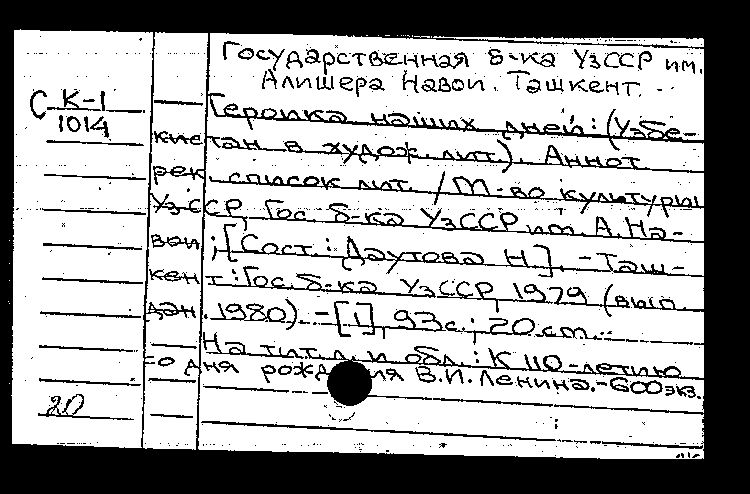 Государственная б-ка УзССР им.
Алишера Навои. Ташкент.
С К-1
1014
Героика наших дней: (Узбе-
кистан в худож. лит.). Аннот
рек. список лит. / М-во культуры
УзССР, Гос. б-ка УзССР им. А. На-
вои; [Сост.: Даутова Н.]. - Таш-
кент: Гос. б-ка УзССР, 1979 (вып.
дан. 1980). - [1], 93 с.; 20 см. -
На тит. л. и обл.: К 110-летию
со дня рождения В.И. Ленина. - 600 экз.
20